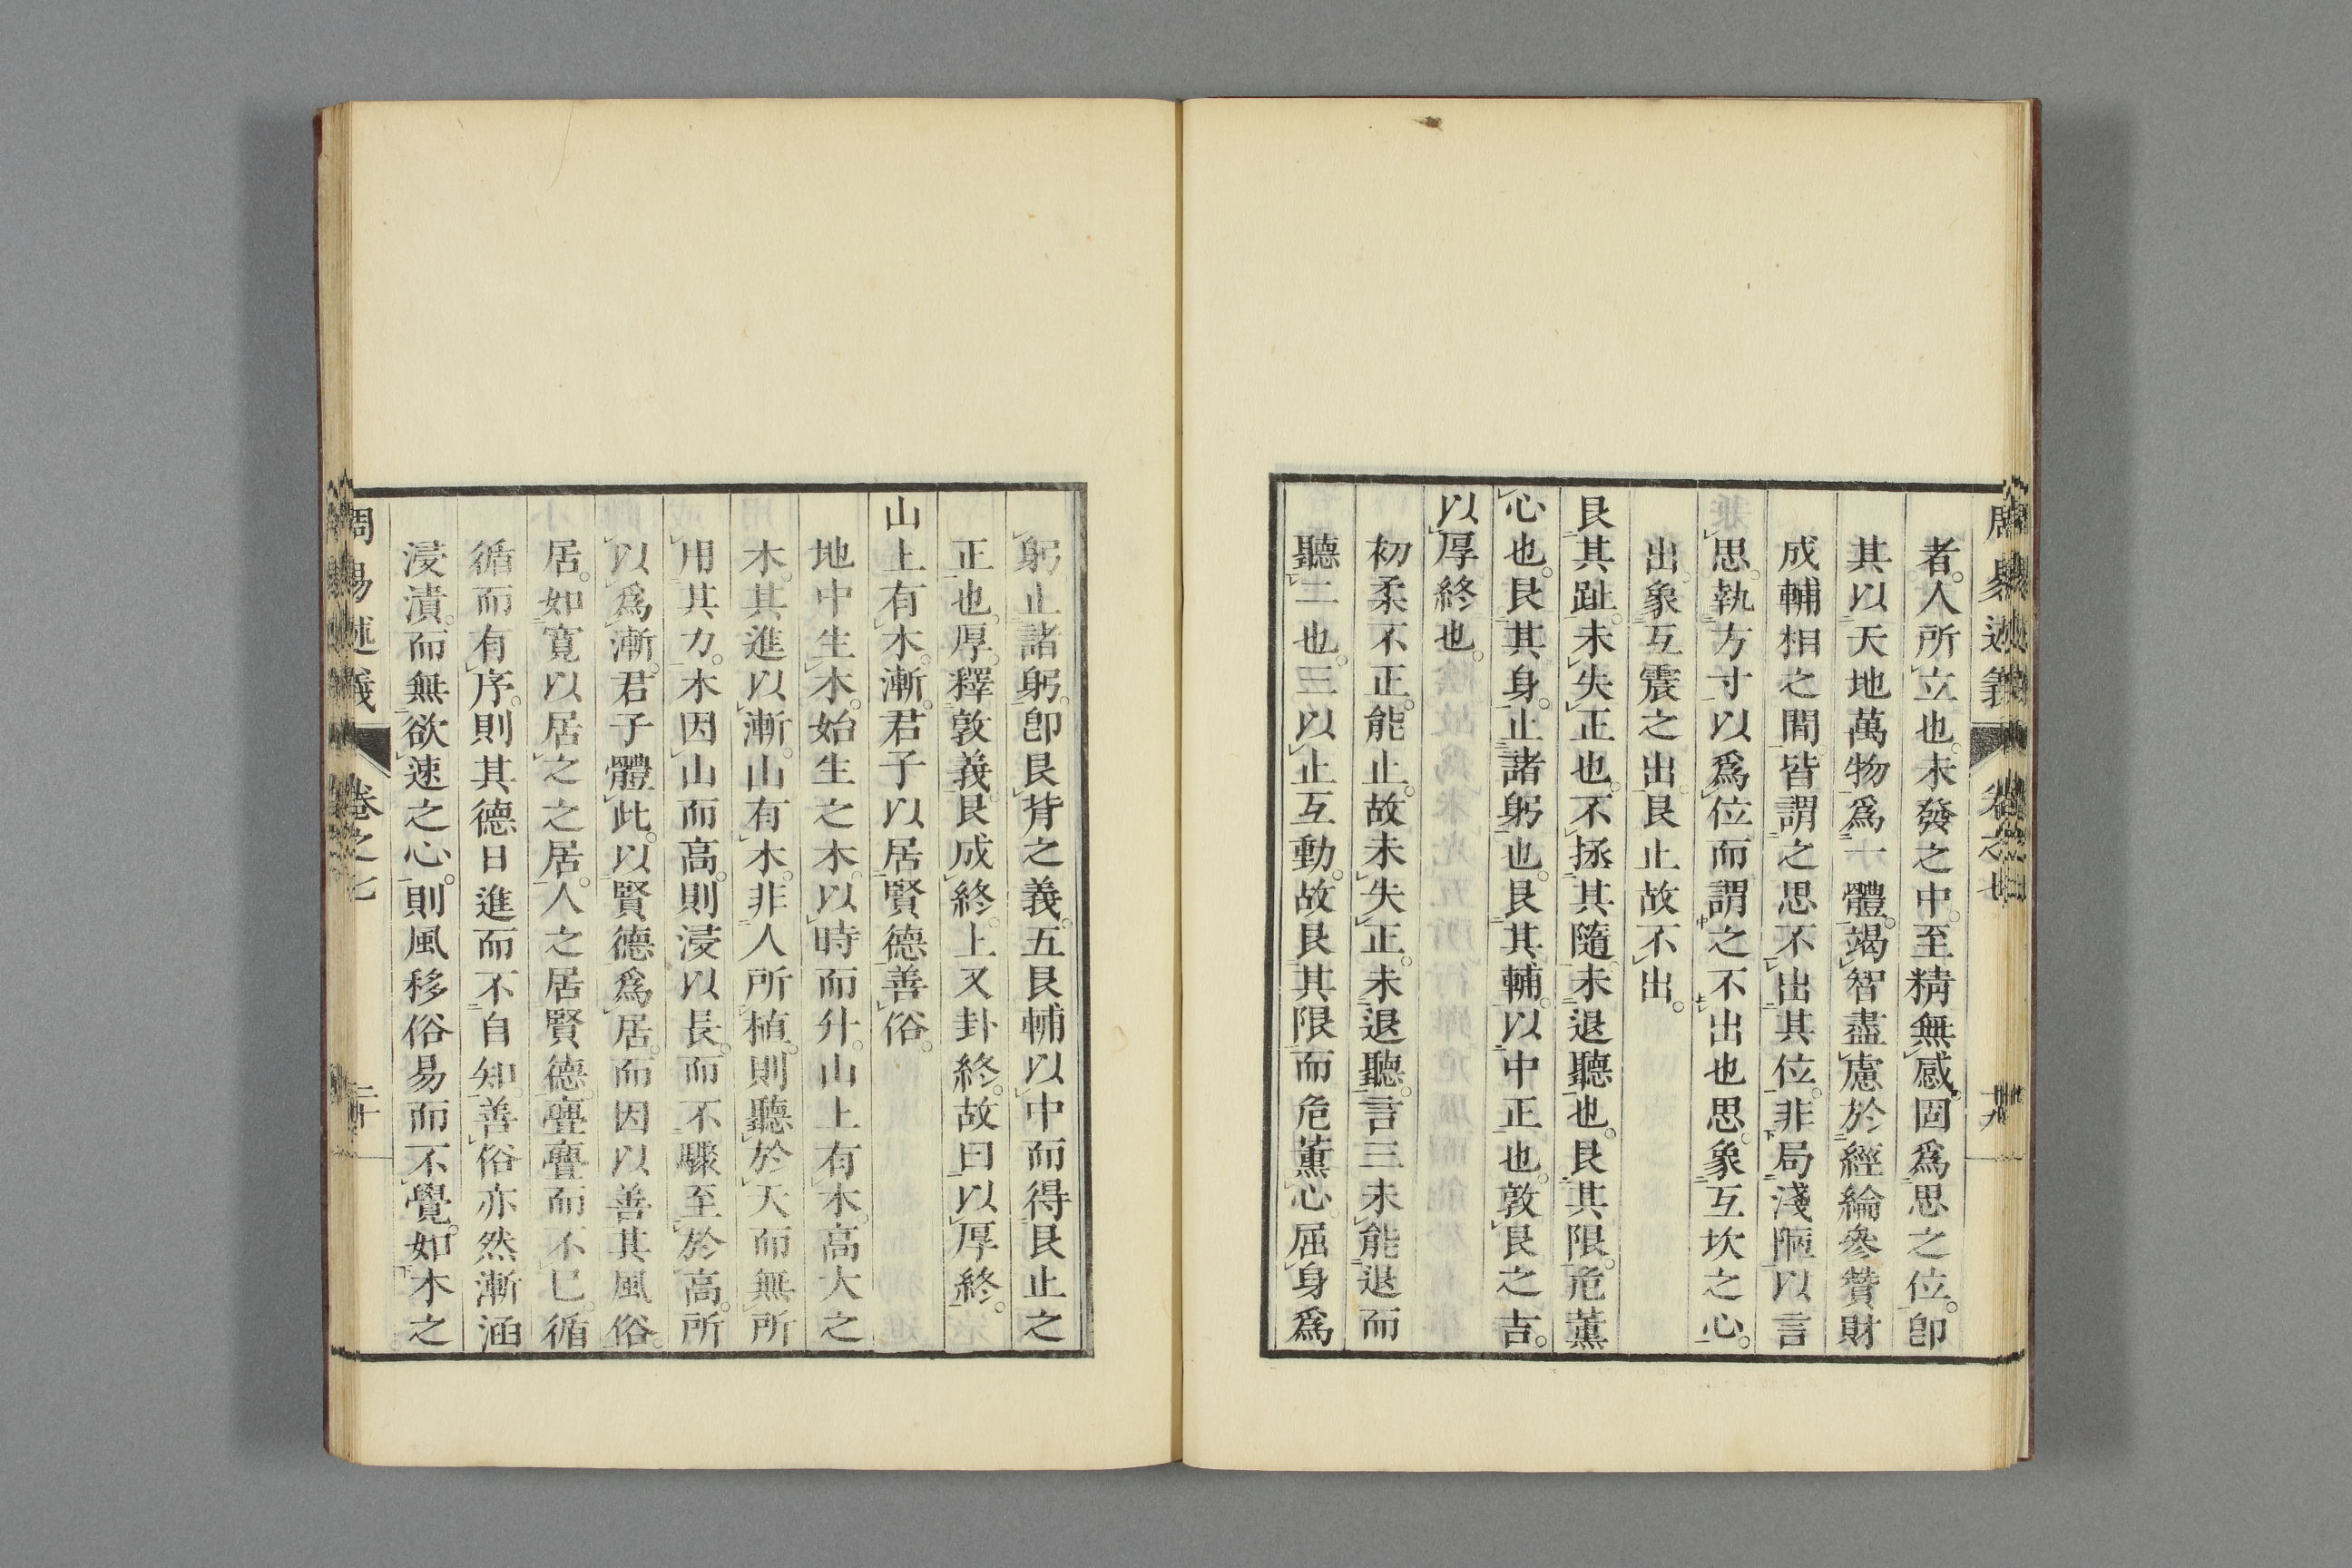 周易述義 卷之七 十九
者。人所立也。未發之中。至精無感。固爲思之位。卽
其以天地萬物爲一體。竭智盡慮於經綸參贊財
成輔相之間。皆謂之思不出其位。非局淺陋以言
思。執方寸以爲位而謂之不出也。思。象互坎之心。
出。象互震之出。艮止故不出。
艮其趾。未失正也。不拯其隨。未退聽也。艮其限。危薰
心也。艮其身。止諸躬也。艮其輔。以中正也。敦艮之吉。
以厚終也。
初柔不正。能止。故未失正。未退聽。言三未能退而
聽二也。三以止互動。故艮其限而危薰心。屈身爲
躬。止諸躬。卽艮背之義。五艮輔以中而得艮止之
正也。厚。釋敦義。艮成終。上又卦終。故曰以厚終。
山上有木。漸。君子以居賢德善俗。
地中生木。始生之木。以時而升。山上有木。高大之
木。其進以漸。山有木。非人所植。則聽於天而無所
用其力。木因山而高。則浸以長。而不驟至於高。所
以爲漸。君子體此。以賢德爲居。而因以善其風俗。
居。如寬以居之之居。人之居賢德。亹亹而不已。循
循而有序。則其德日進而不自知。善俗亦然。漸涵
浸漬。而無欲速之心。則風移俗易而不覺。如木之
周易述義 卷之七 二十